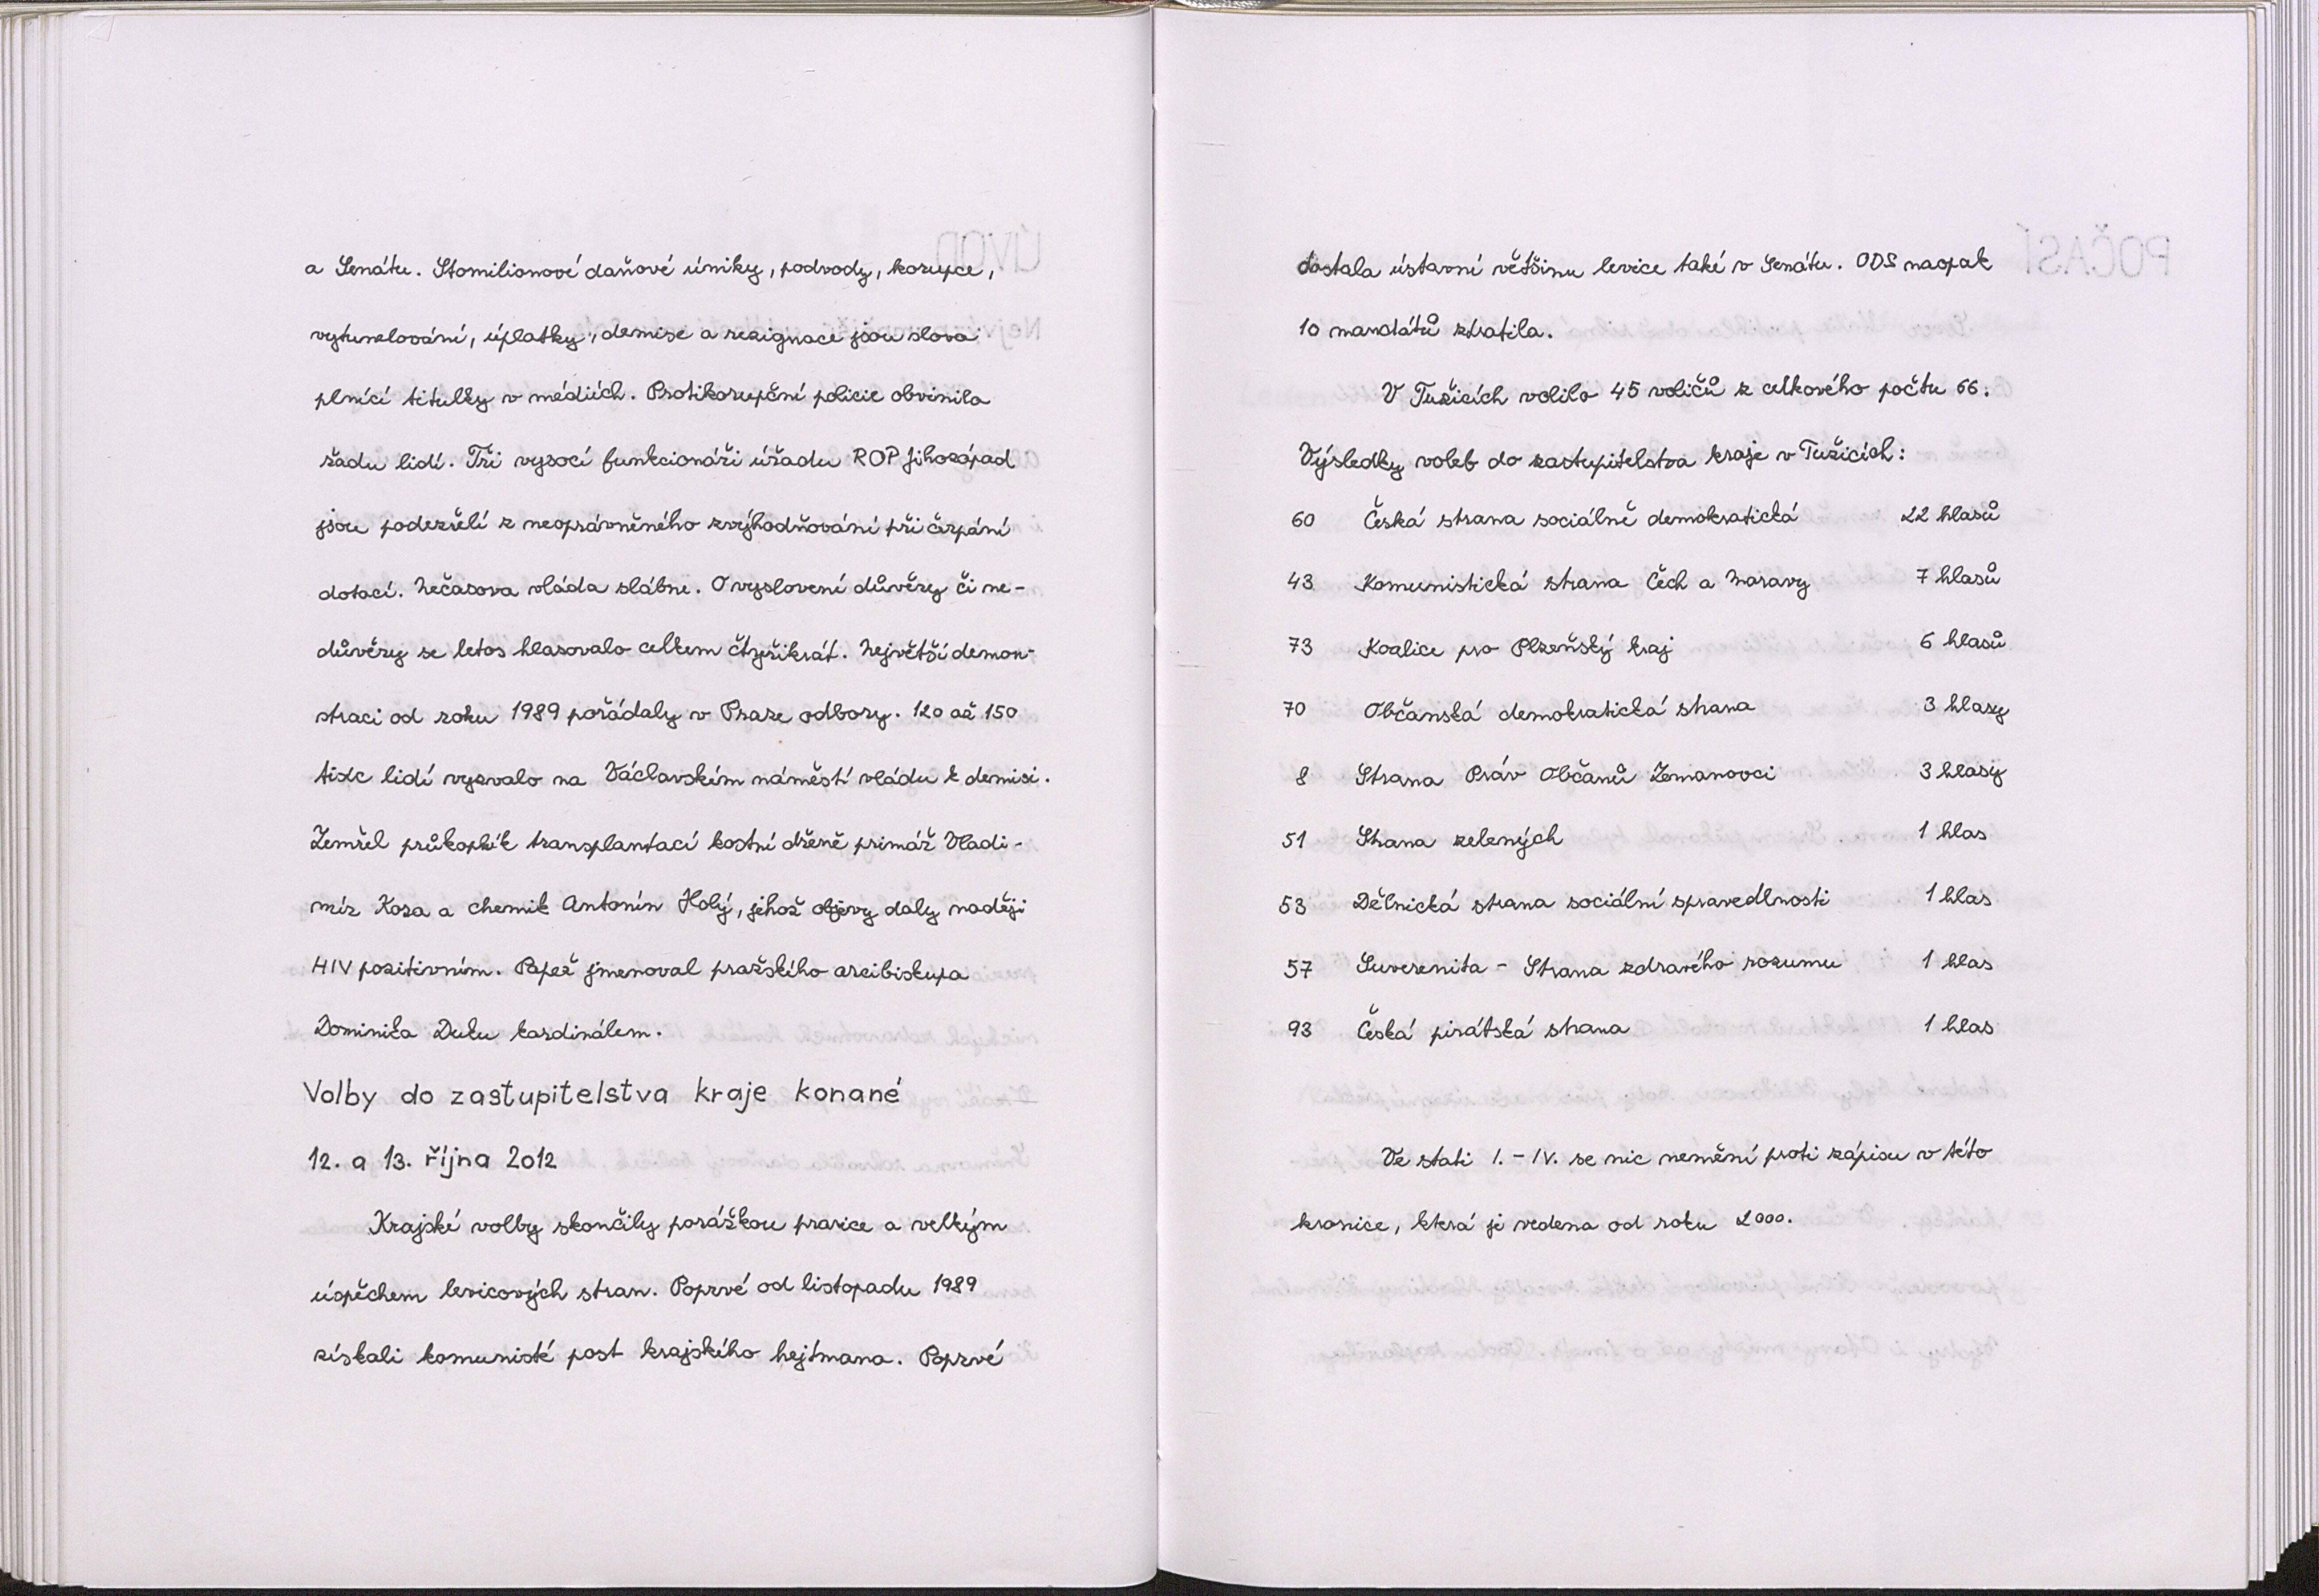 a Senátu. Stomilionové daňové úniky, podvody, korupce,
vytunelování, úplatky, demise a rezignace jsou slova
plnící titulky v médiích. Protikorupční policie obvinila
řadu lidí. Tři vysocí funkcionáři úřadu ROP Jihozápad
jsou podezřelí z neoprávněného zvýhodňování při čerpání
dotací. Nečasova vláda slábne. O vyslovení důvěry či ne-
důvěry se letos hlasovalo celkem čtyřikrát. Největší demon-
straci od roku 1989 pořádaly v Praze odbory. 120 až 150
tisíc lidí vyzvalo na Václavském náměstí vládu k demisi.
Zemřel průkopník transplantací kostní dřeně primář Vladi-
mír Koza a chemik Antonín Holý, jehož objevy daly naději
HIV pozitivním. Papež jmenoval pražského arcibiskupa
Dominika Duku kardinálem.
Volby do zastupitelstva kraje konané
12. a 13. října 2012
Krajské volby skončily porážkou pravice a velkým
úspěchem levicových stran. Poprvé od listopadu 1989
získali komunisté post krajského hejtmana. Poprvé
dostala ústavní většinu levice také v Senátu. ODS naopak
10 mandátů ztratila.
V Tužicích volilo 45 voličů z celkového počtu 66.
Výsledky voleb do zastupitelstva kraje v Tužicích:
60 Česká strana sociálně demokratická 22 hlasů
43 Komunistická strana Čech a Moravy 7 hlasů
73 Koalice pro Plzeňský kraj 6 hlasů
70 Občanská demokratická strana 3 hlasy
8 Strana Práv Občanů Zemanovci 3 hlasy
51 Strana zelených 1 hlas
53 Dělnická strana sociální spravedlnosti 1 hlas
57 Suverenita - Strana zdravého rozumu 1 hlas
93 Česká pirátská strana 1 hlas
Ve stati I. - IV. se nic nemění proti zápisu v této
kronice, která je vedena od roku 2000.